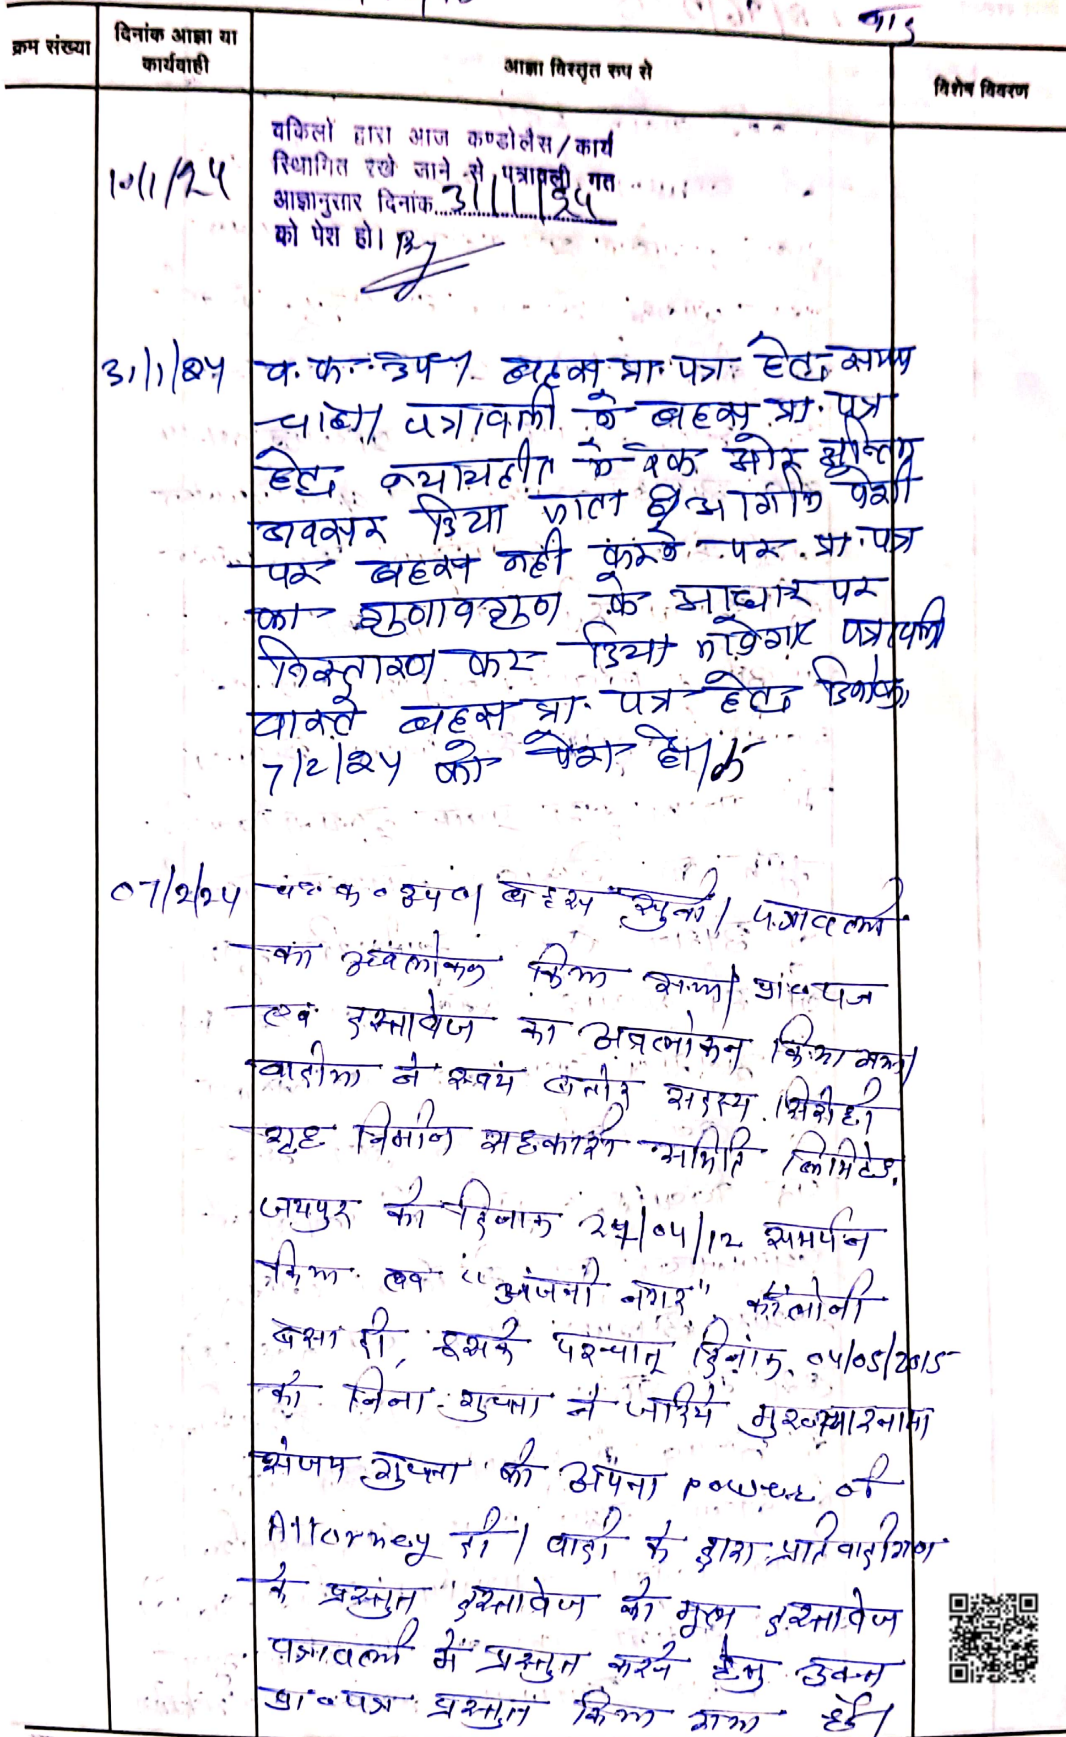 क्रम संख्या
दिनांक आज्ञा या
कार्यवाही
आज्ञा विस्तृत रूप से
विशेष विवरण
10/1/24
वकिलों द्वारा आज कण्डोलैंस/कार्य
स्थिागित रखे जाने से पत्रावली गत
आज्ञानुसार दिनांक 31/1/24
को पेश हो।
31/1/24
व. फ. उप। बहस प्रा. पत्र हेतु समय
चाहा। पत्रावली में बहस प्रा. पत्र
हेतु न्यायहीत में एक और अन्तिम
अवसर दिया जाता है आगामी पेशी
पर बहस नही करने पर प्रा. पत्र
का गुणावगुण के आधार पर
निस्तारण कर दिया जावेगा पत्रावली
वास्ते बहस प्रा. पत्र हेतु दिनांक
7/2/24 को पेश हो।
07/2/24
व० फ० उप०। बहस सुनी। पत्रावली
का अवलोकन किया गया। प्रा० पत्र
एवं दस्तावेज का अवलोकन किया गया।
वादीया ने स्वयं बतौर सदस्य सिरोही
गृह निर्माण सहकारी समिति लिमिटेड,
जयपुर को दिनांक /04/12 समर्पन
किया एवं "अंजनी नगर" कॉलोनी
बसा दी, इसके पश्चात् दिनांक 04/05/2015
को गुप्ता ने जरिये मुख्त्यारनामा
संजय गुप्ता को अपना power of
Attorney दी। वादी के द्वारा प्रतिवादीगण
के प्रस्तुत दस्तावेज को मूल दस्तावेज
पत्रावली में प्रस्तुत करने हेतु उक्त
प्रा० पत्र प्रस्तुत किया गया है।